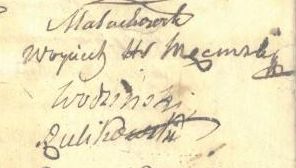 Małachowski
Wojciech Hr Męcinski
Wodziński
Żulikowski